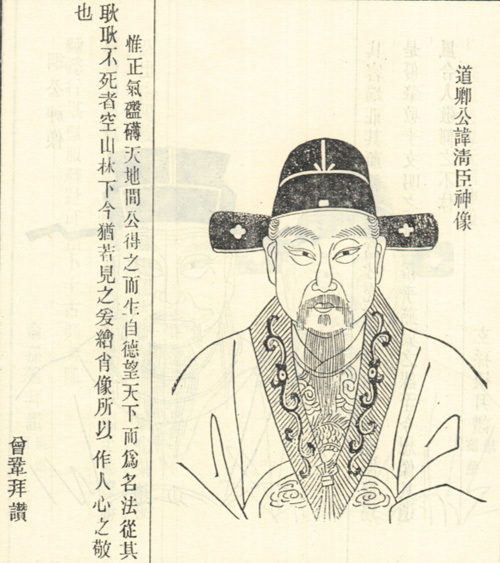 道卿公諱清臣神像
惟正気礴天地間公得之而生自德望天下而爲名法從其
耿耿不死者空山林下今猶若見之爰繪肖像所以作人心之敬
也
曾鞏拜讚